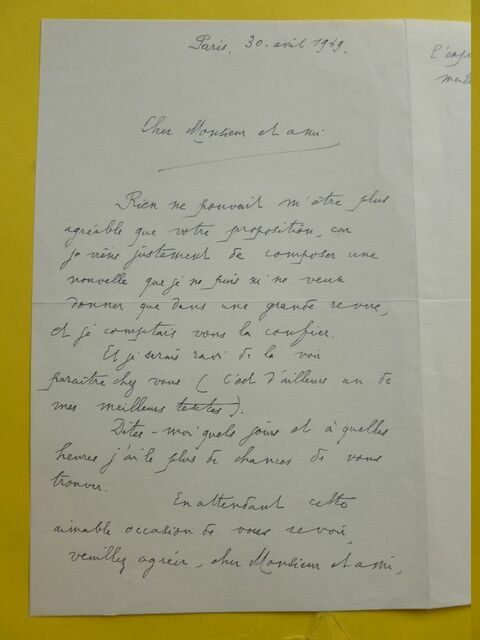 Paris, 30 avril 1949.
Cher Monsieur et ami
Rien ne pouvait m'être plus
agréable que votre proposition, car
je viens justement de composer une
nouvelle que je ne puis ni ne veux
donner que dans une grande revue,
et je comptais vous la confier.
Et je serais ravi de la voir
paraître chez vous (c'est d'ailleurs un de
mes meilleurs textes).
Dites-moi quels jours et à quelles
heures j'ai le plus de chances de vous
trouver.
En attendant cette
aimable occasion de vous revoir,
veuillez agréer, cher Monsieur et ami,